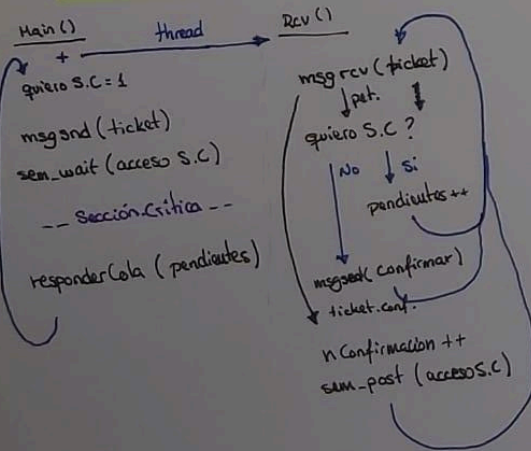 Main()
+
thread
quiero S.C = 1
msgsnd (ticket)
sem_wait (acceso S.C)
-- Sección Crítica --
responderCola (pendientes)
Rcv ()
msgrcv (ticket)
pet.
quiero S.C ?
No
Si
pendientes ++
msgsnd( confirmar)
ticket.conf.
n Confirmacion ++
sem_post (acceso S.C)